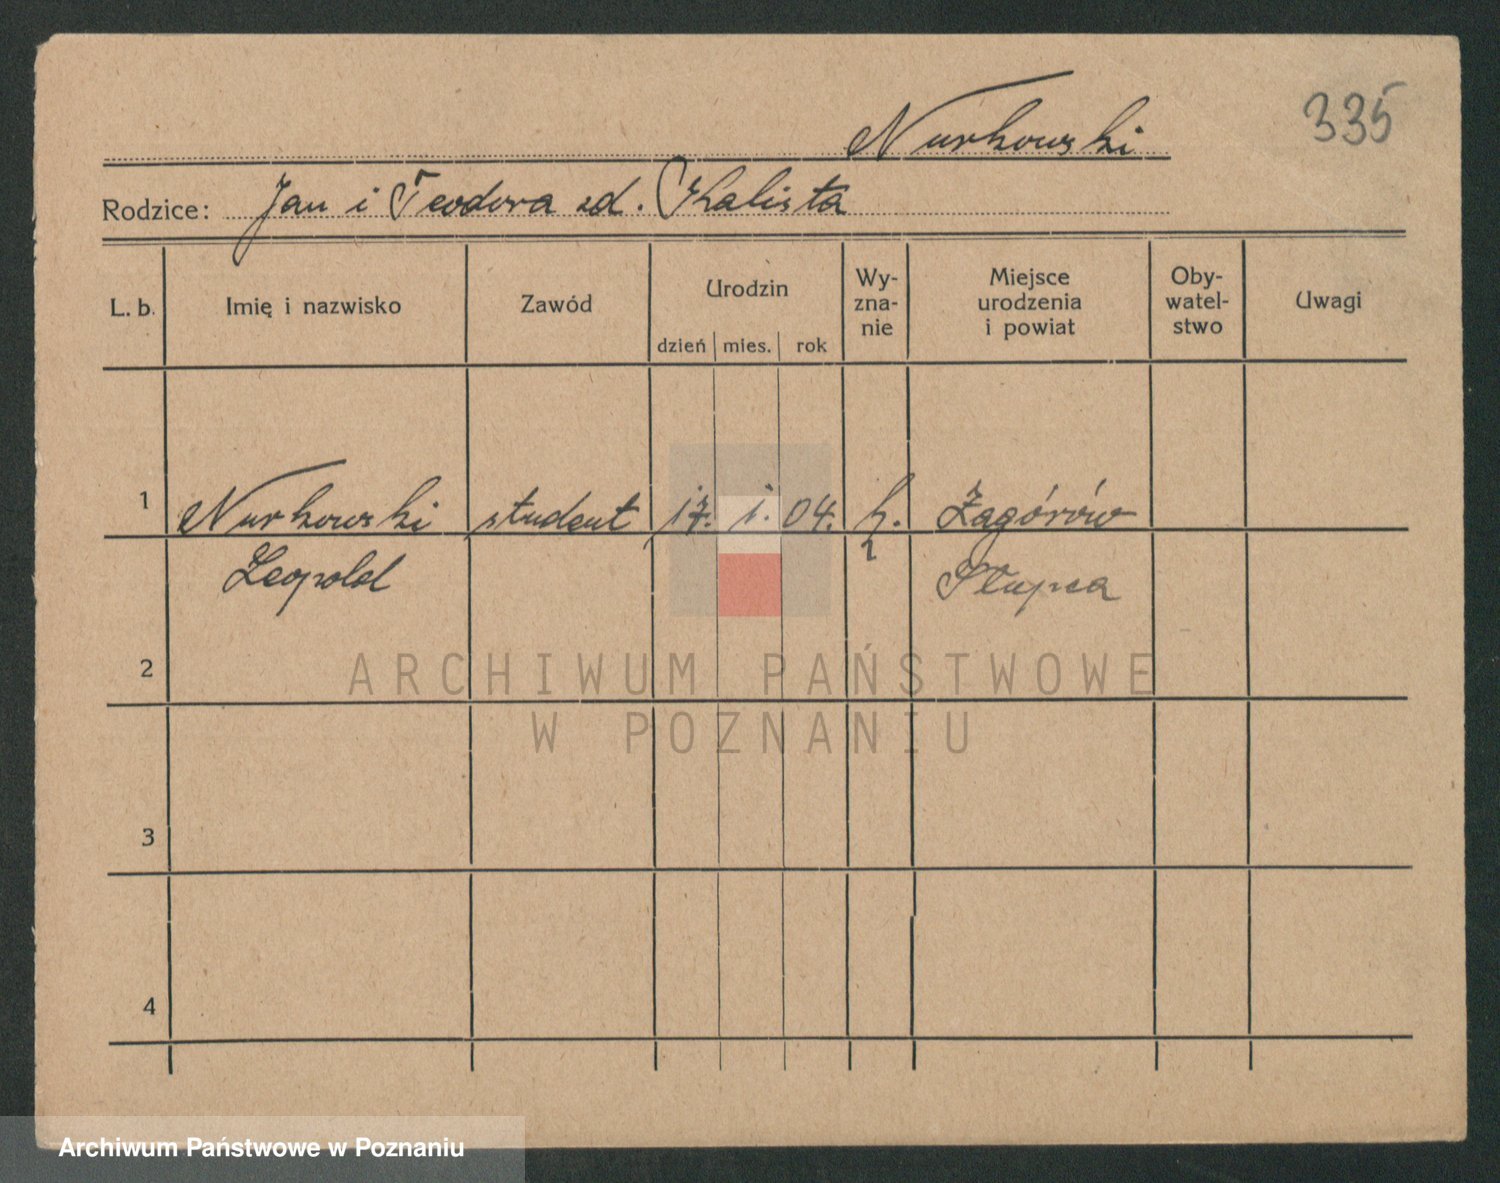 335
Nurkowski
Rodzice: Jan i Teodora zd. Kalista
L. b. Imię i nazwisko Zawód Urodzin dzień mies. rok Wy-zna-nie Miejsce urodzenia i powiat Oby-watel-stwo Uwagi
1 Nurkowski student 17. 1. 04. Zagórów
Leopold Słupca
2
ARCHIWUM PAŃSTWOWE
W POZNANIU
3
4
Archiwum Państwowe w Poznaniu